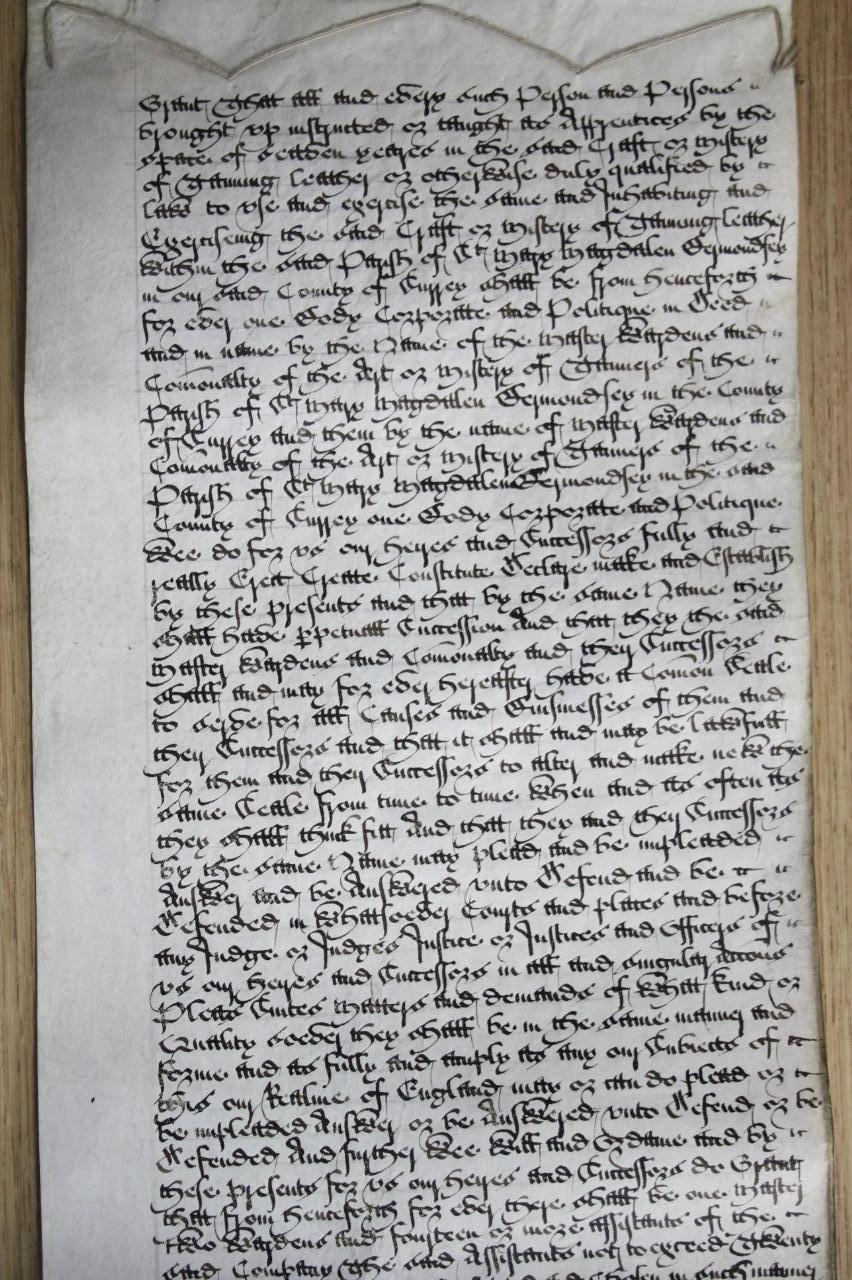 Grant That all and every such Person and Persons
brought vp instructed or taught as Apprentices by the
space of seaven yeares in the said Craft or Mistery
of Tanning Leather or otherwise duly qualified by
Law to vse and exercise the same and Inhabiting and
Exerciseing the said Craft or Mistery of Tanning Leather
within the said Parish of St Mary Magdalen Bermondsey
in our said County of Surrey shall be from henceforth
for ever one Body Corporate and Politique in Deed
and in name by the Name of the Master Wardens and
Comonalty of the Art or Mistery of Tanners of the
Parish of St Mary Magdalen Bermondsey in the County
of Surrey and them by the name of Master Wardens and
Comonalty of the Art or Mistery of Tanners of the
Parish of St Mary Magdalen Bermondsey in the said
County of Surrey one Body Corporate and Politique
Wee do for vs our Heyres and Successors fully and
really Erect Create Constitute Declare make and Establish
by these presents and that by the same Name they
shall have ppetuall Succession And that they the said
Master Wardens and Comonalty and their Successors
shall and may for ever hereafter have a Comon Seale
to serve for all Causes and Businesses of them and
their Successors and that it shall and may be lawfull
for them and their Successors to alter and make new the
same Seale from time to time when and as often as
they shall think fitt And that they and their Successors
by the same Name may plead and be impleaded
Answer and be Answered vnto Defend and be
Defended in whatsoever Courts and places and before
any Judge or Judges Justice or Justices and Officers of
vs our Heyres and Successors in all and singular Accons
Pleas Suites Matters and demands of what kind or
Quality soever they shall be in the same manner and
forme and as fully and amply as any our Subiects of
this our Realme of England may or can do plead or
be impleaded Answer or be Answered vnto Defend or be
Defended And further Wee Will and Ordaine and by
these presents for vs our Heyres and Successors do Grant
that from henceforth for ever there shall be one Master
two Wardens and fourteen or more assistants of the
said Company the said Assistants not to exceed Twenty
Chosen in such manner